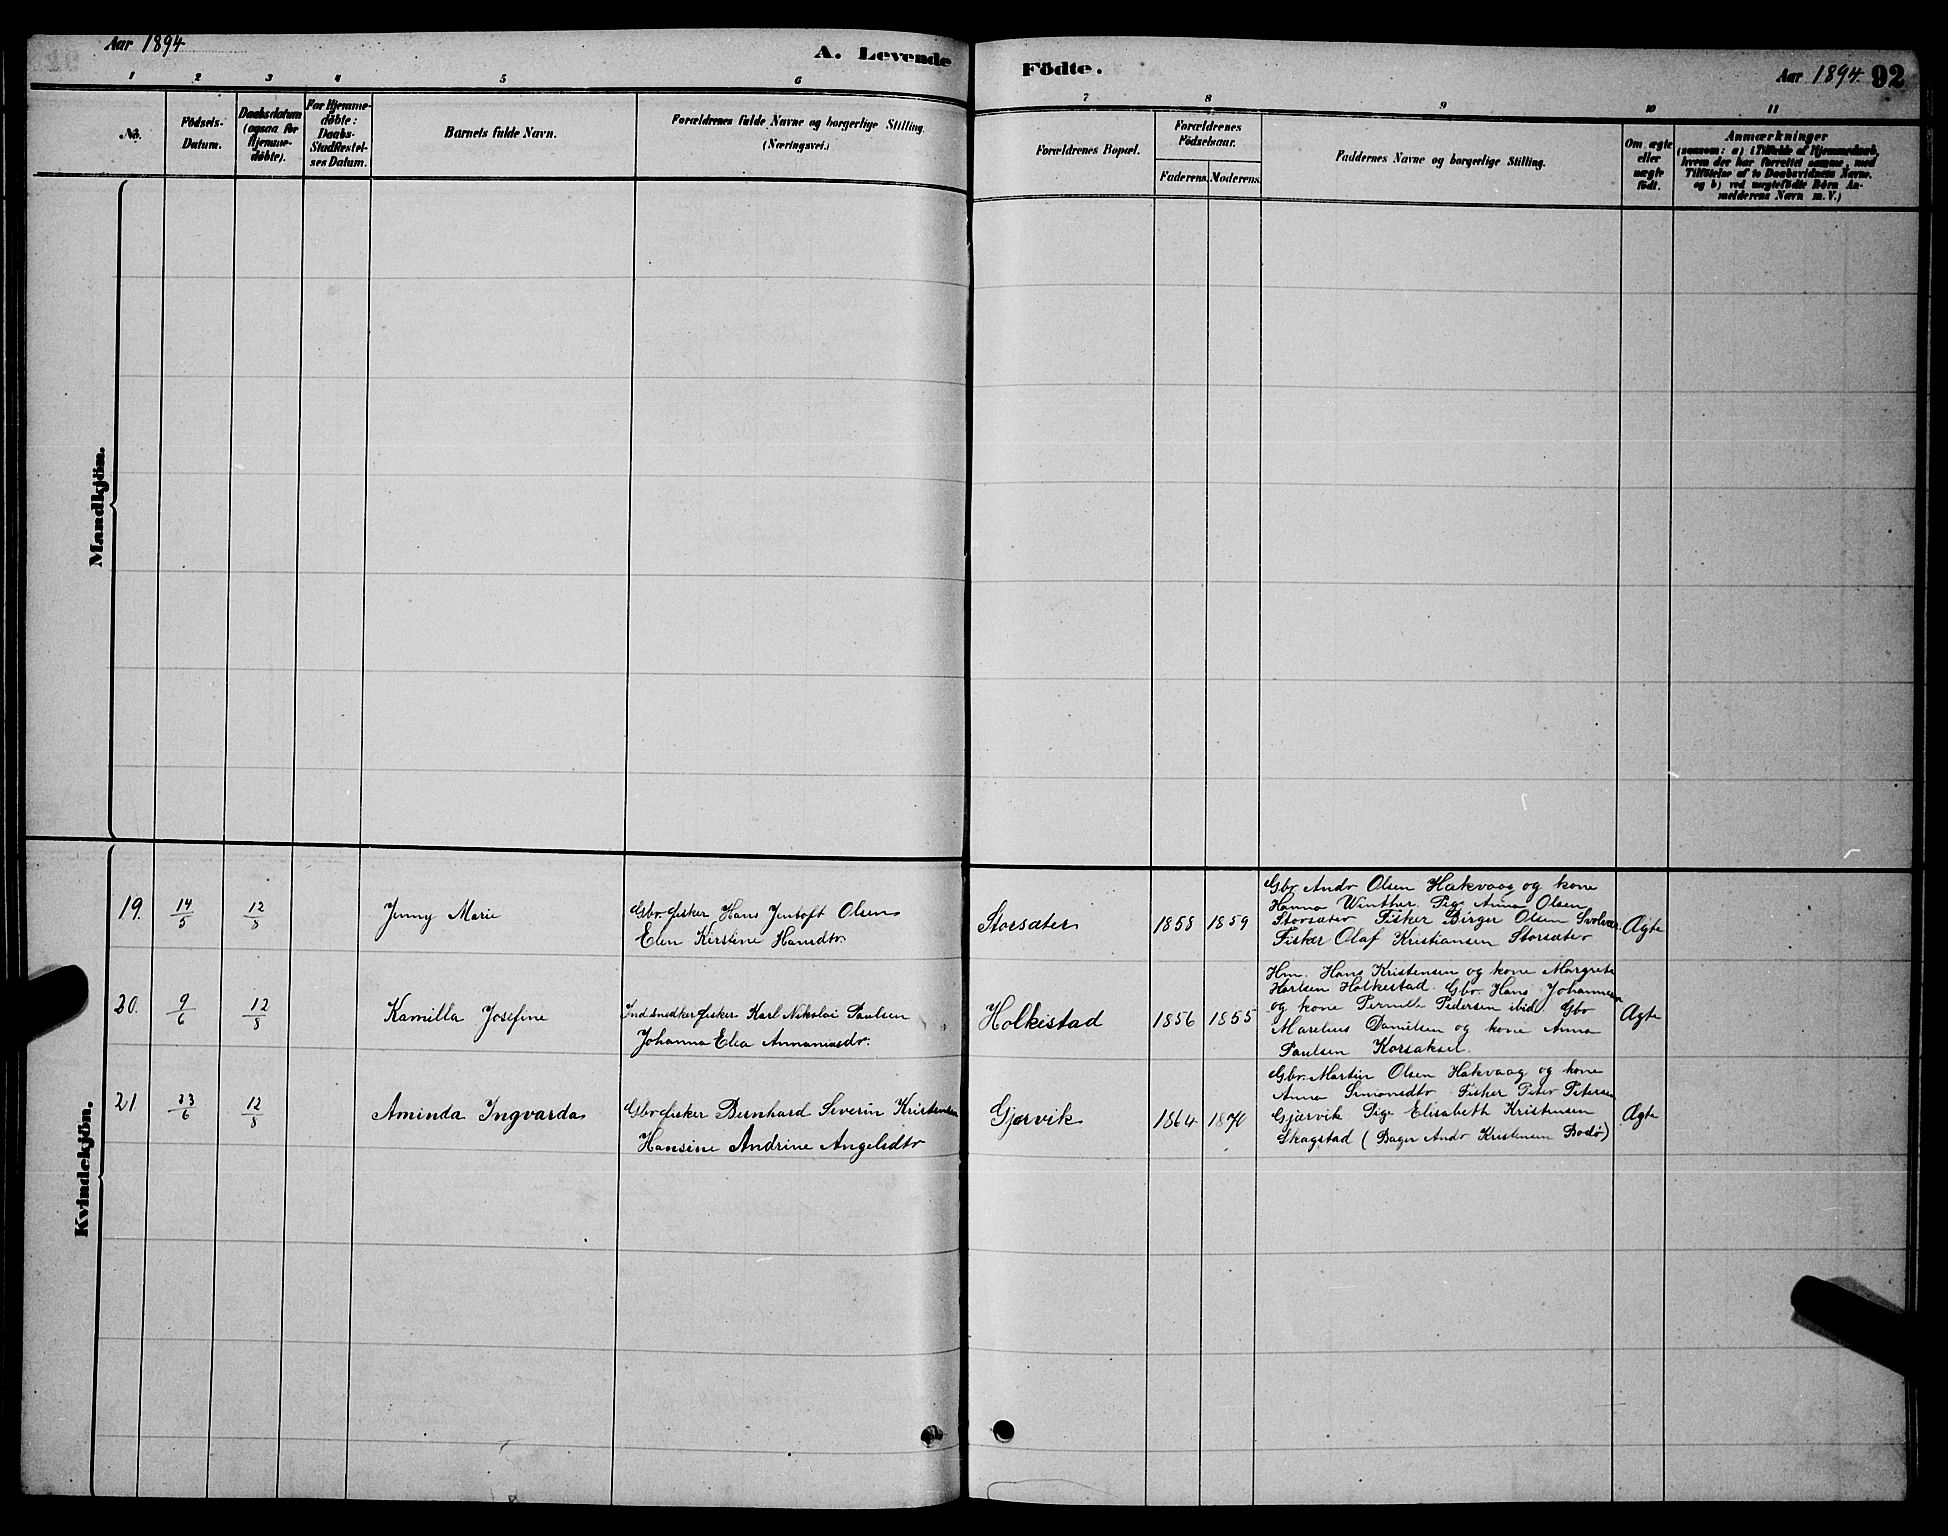 Aar 1894
A. Levende
Fødte.
Aar 1894. 92
1 2 3 4 5 6
7 8 9 10 11
No.
Fødsels-
Datum.
Daabsdatum
(ogsaa for
Hjemme-
døbte).
For Hjemme-
døbte:
Daabs-
Stadfæstel-
ses Datum.
Barnets fulde Navn.
Forældrenes fulde Navne og borgerlige Stilling.
(Næringsvei.)
Forældrenes Bopæl.
Forældrenes
Fødselsaar.
Faderens. Moderens.
Faddernes Navne og borgerlige Stilling.
Om ægte
eller
uægte
født.
Anmærkninger
(saasom: a) i Tilfælde af Hjemmedaab,
hvem der har forrettet samme, med
Tilføielse af to Daabsvidners Navne.
og b) ved uægtefødte Børn An-
melderens Navn m. V.)
Mandkjön.
Kvindekjön.
19. 14/5 12/8 Jenny Marie
Gbr. fisker Hans Jentoft Olsen
Elen Kirstine Hansdtr.
Storsæter 1858 1859
Gbr. Andr Olsen Hakvaag og kone
Hanna Winther. Pige Anna Olsen
Storsæter Fisker Birger Olsen Svolvær
Fisker Olaf Kristiansen Storsæter
Ægte
20. 9/6 12/8 Kamilla Josefine
Ind snedker fisker Karl Nikolai Paulsen
Johanna Elea Annaniasdr.
Holkestad 1856 1855
Hm. Hans Kristensen og kone Margrete
Karlsen Holkestad. Gbr. Hans Johannesen
og kone Pernille Pedersen ibid. Gbr
Marelius Danielsen og kone Anna
Paulsen Korsaksel.
Ægte
21 23/6 12/8 Aminda Ingvarda
Gbr fisker Bernhard Severin Kristensen
Hansine Andrine Angelsdtr
Gjærvik 1864 1870
Gbr. Martin Olsen Hakvaag og kone
Anna Simonsdtr Fisker Peter Petersen
Gjærvik Pige Elisabeth Kristensen
Skagstad (Bager Andr Kristensen Bodø)
Ægte